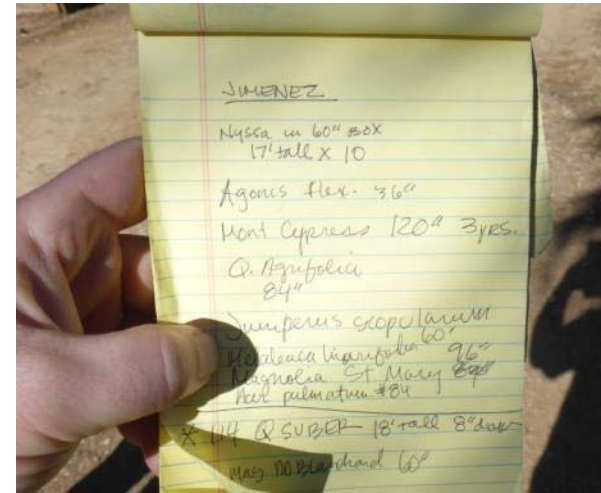 JIMENEZ
Nyssa in 60" BOX
17' tall x 10
Agonis flex. 36"
Mont Cypress 120" 3yrs.
Q. Agrifolia
84"
Juniperus scopularum
Melaleuca linarifolia 60"
Magnolia St Mary 96"
Acer palmatum #84
* 114 Q SUBER 18' tall 8"
Mag DD Blanchard 60"